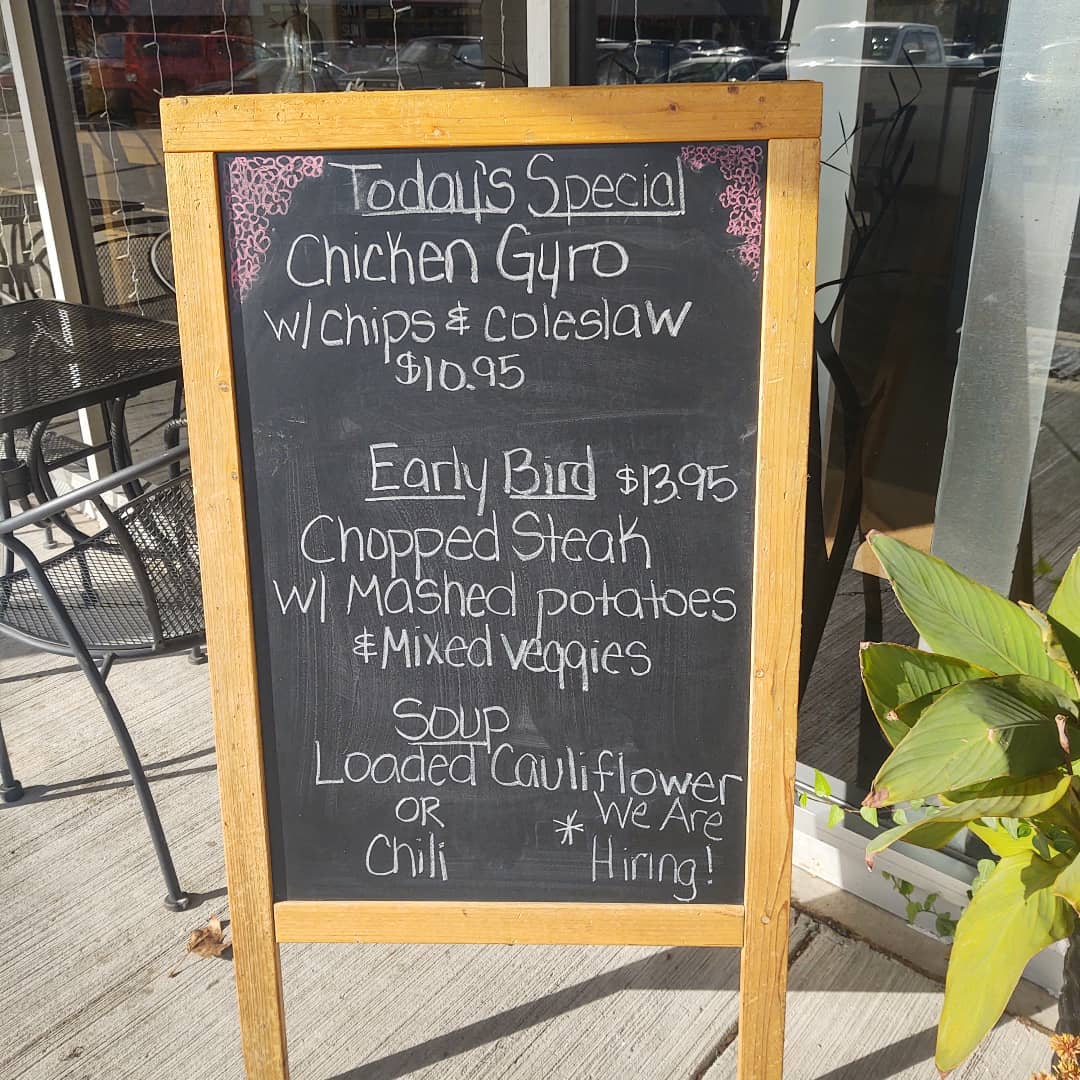 Today's Special
Chicken Gyro
w/ chips & coleslaw
$10.95
Early Bird $13.95
Chopped Steak
w/ Mashed potatoes
& Mixed veggies
Soup
Loaded Cauliflower
OR
Chili
* We Are
Hiring!